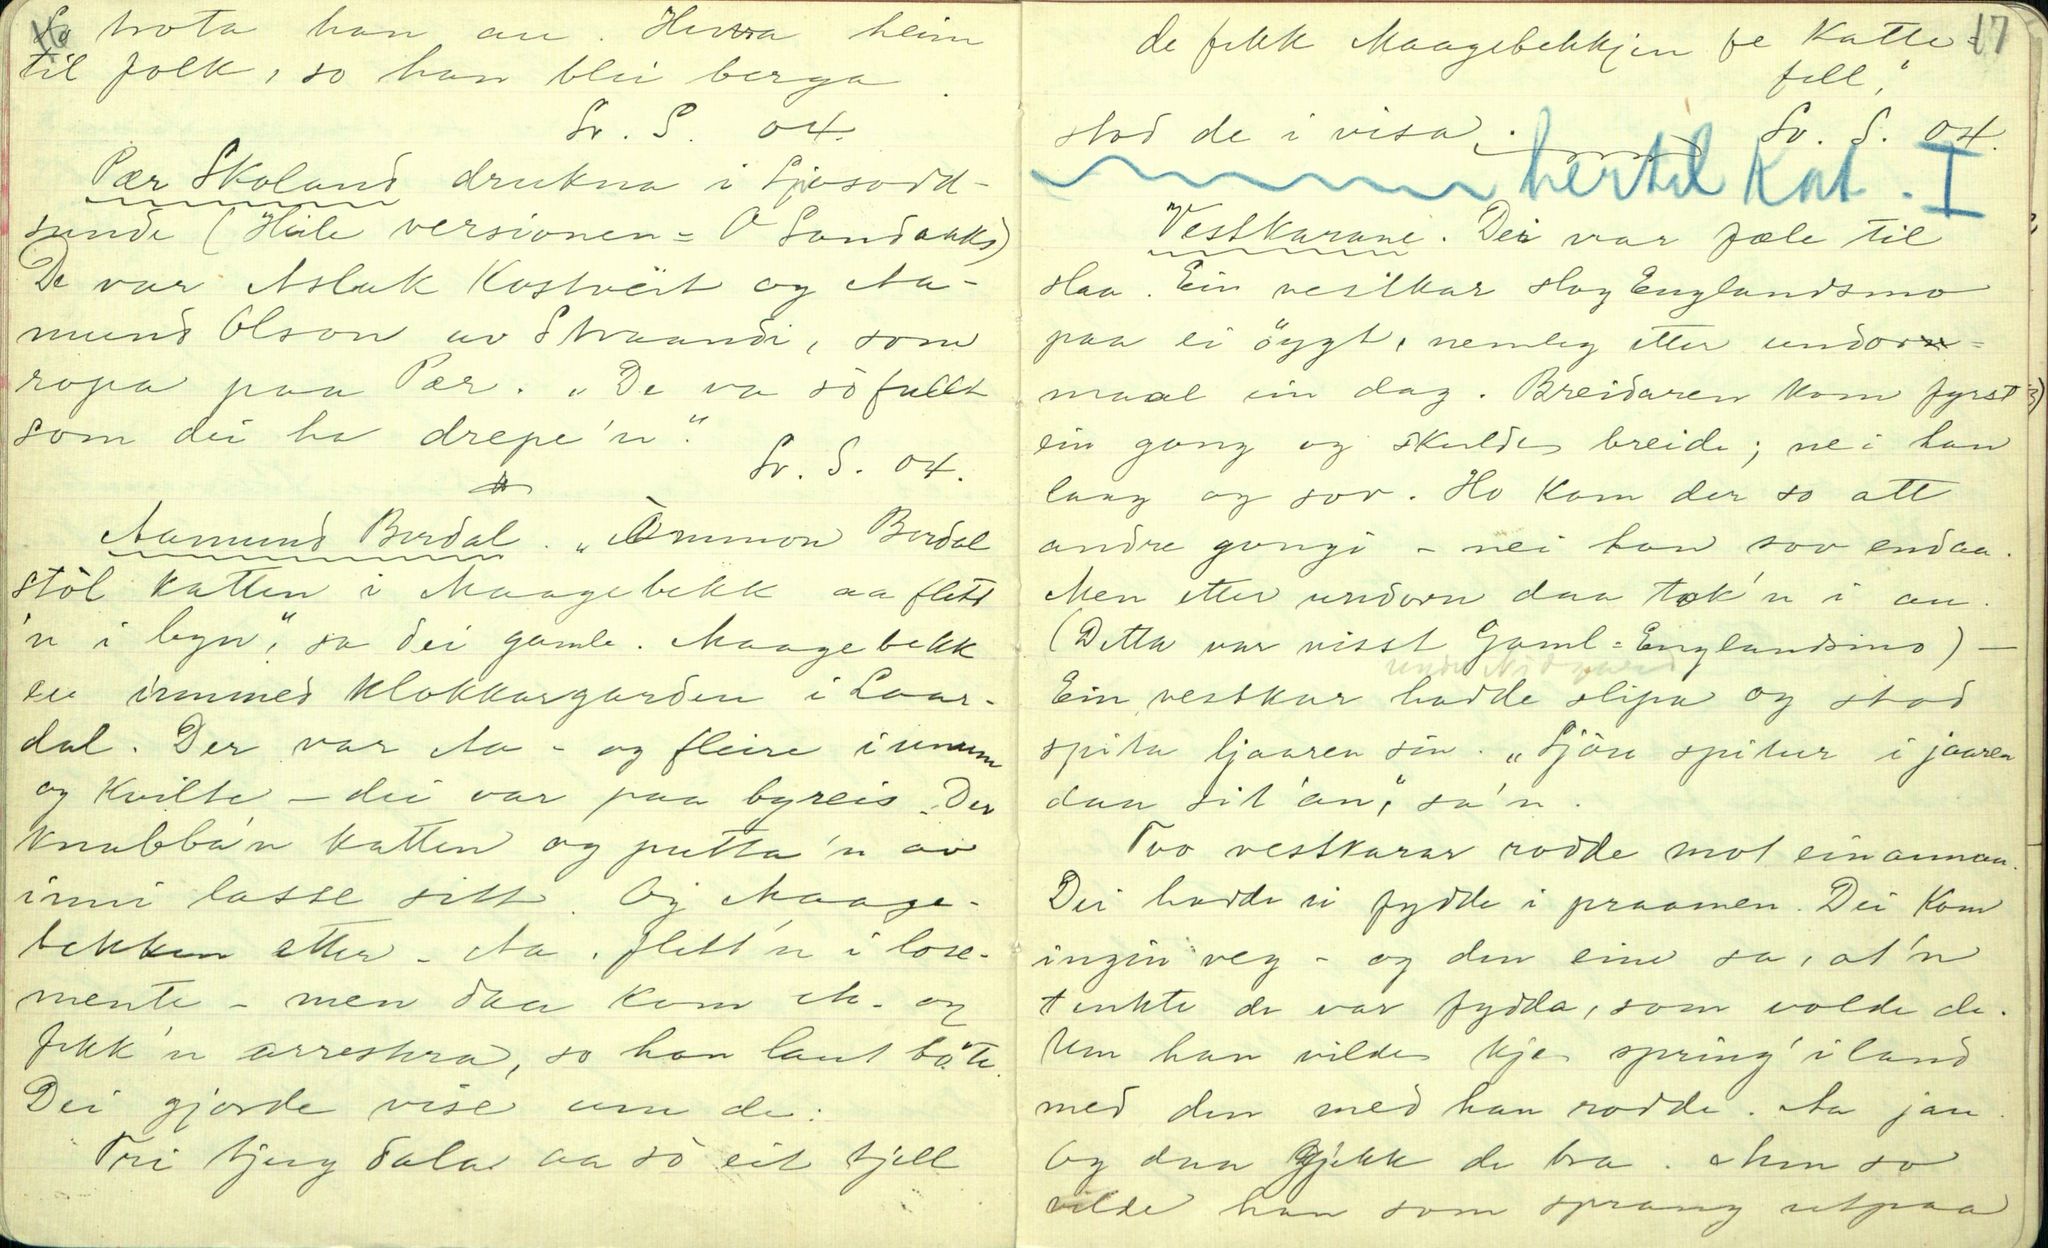 So trota han au. Hivra heim
til folk, so han blei berga.
Sv. S. 04.
Pær Skoland drukna i Ljosodd-
sunde (Heile versionen = O Sandaaks)
De var Aslak Kostveit og Aa-
mund Olson av Straandi, som
ropa paa Pær. "De va so fullt
som dei ha drepe'n".
Sv. S. 04.
Aamund Bordal. "Ommon Bordal
stòl katten i Maagebekk aa flett
'n i byn," sa dei gamle. Maagebekk
er innmed klokkargarden i Laar-
dal. Der var Aa - og fleire innum
og kvilte - dei var paa byreis. Der
knabba'n katten og putta'n av
inni lasse sitt. Og Maage-
bekken etter. Aa. flett'n i lose-
mente - men daa kom M. og
fekk'n arrestera, so han laut böte.
Dei gjorde vise um de:
Tri tjug dalar aa sò eit fjell
17
de fekk Maagebekkjen fe Katte-
fell,"
stod de i visa.
Sv. S. 04.
hertil Kat. I
Vestkarane. Dei var fæle til
slaa. Ein vestkar slog Englandsmo
paa ei öygt, nemleg etter undors-
maal ein dag. Breidaren kom fyrst
ein gong og skulde breide; nei han
laag og sov. Ho kom der so att
andre gongi - nei han sov endaa.
Men etter undorn daa tok'n i au.
(Detta var visst Gaml-Englandsmo) —
Ein vestkar hadde slipa og stod
spita ljaaren sin. "Sjöre spitur i jaaren
daa sit'an," sa'n.
Tvo vestkarar rodde mot einannan.
Dei hadde ei fydde i praamen. Dei kom
ingin veg - og den eine sa, at'n
tenkte de var fydda, som volde de.
Um han vilde kje spring' i land
med den med han rodde. Aa jau.
Og daa gjekk de bra. Men so
vilde han som sprang utpaa